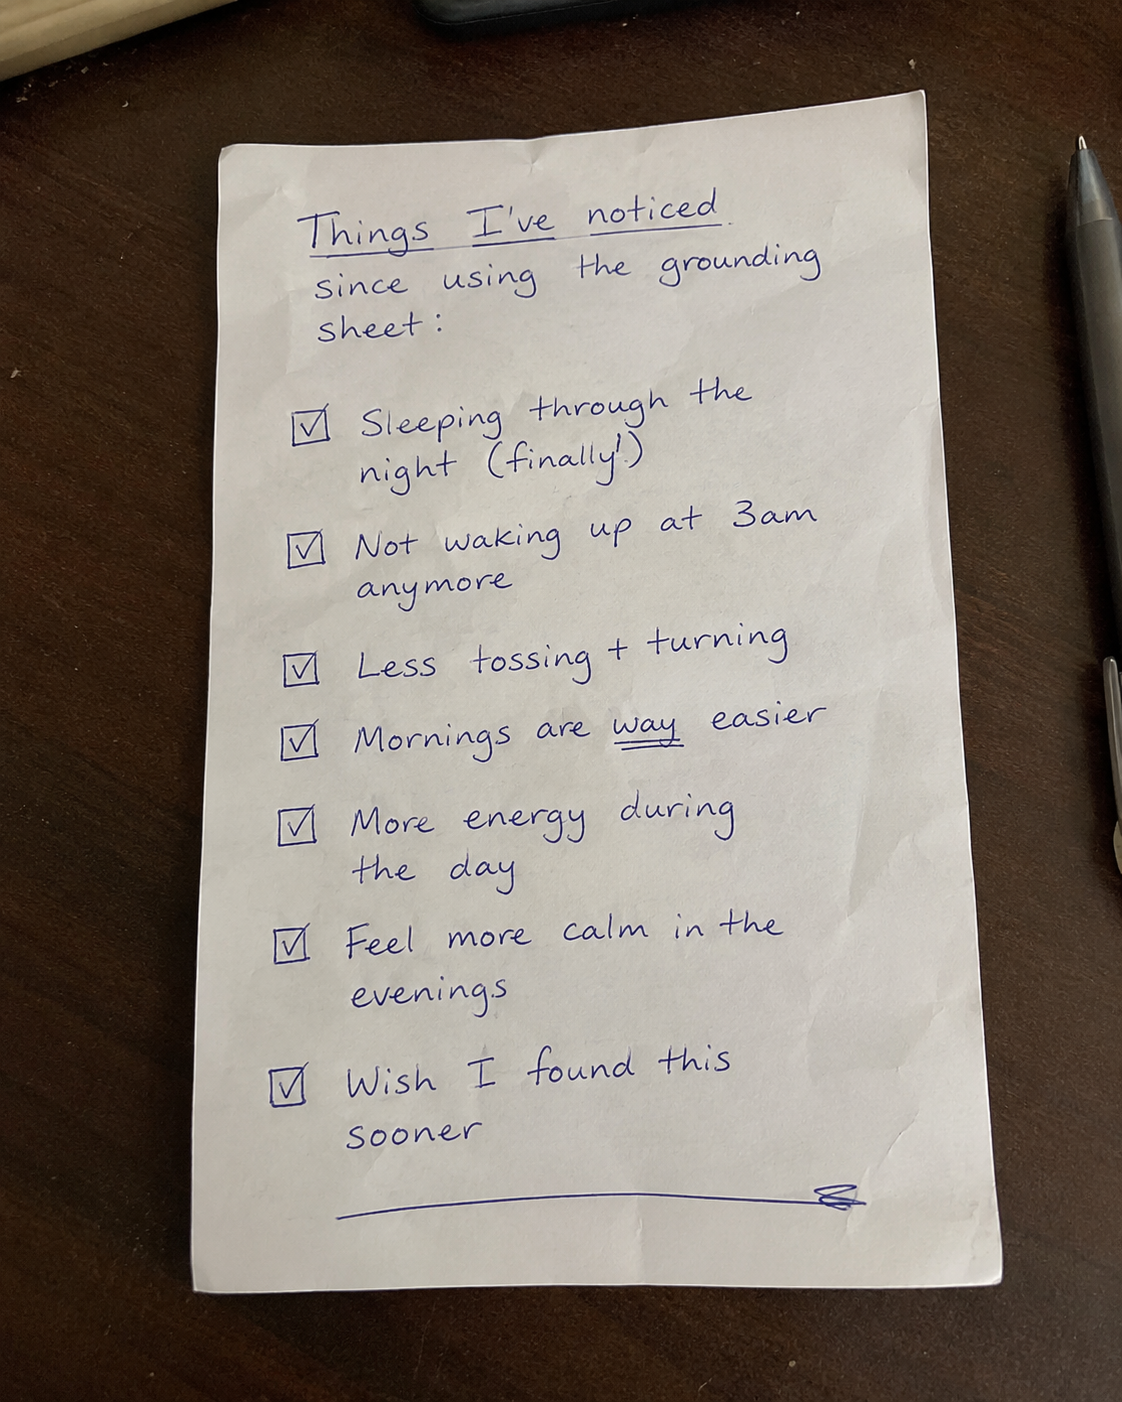 Things I've noticed
since using the grounding
sheet:
☑ Sleeping through the
night (finally!)
☑ Not waking up at 3am
anymore
☑ Less tossing + turning
☑ Mornings are way easier
☑ More energy during
the day
☑ Feel more calm in the
evenings
☑ Wish I found this
sooner